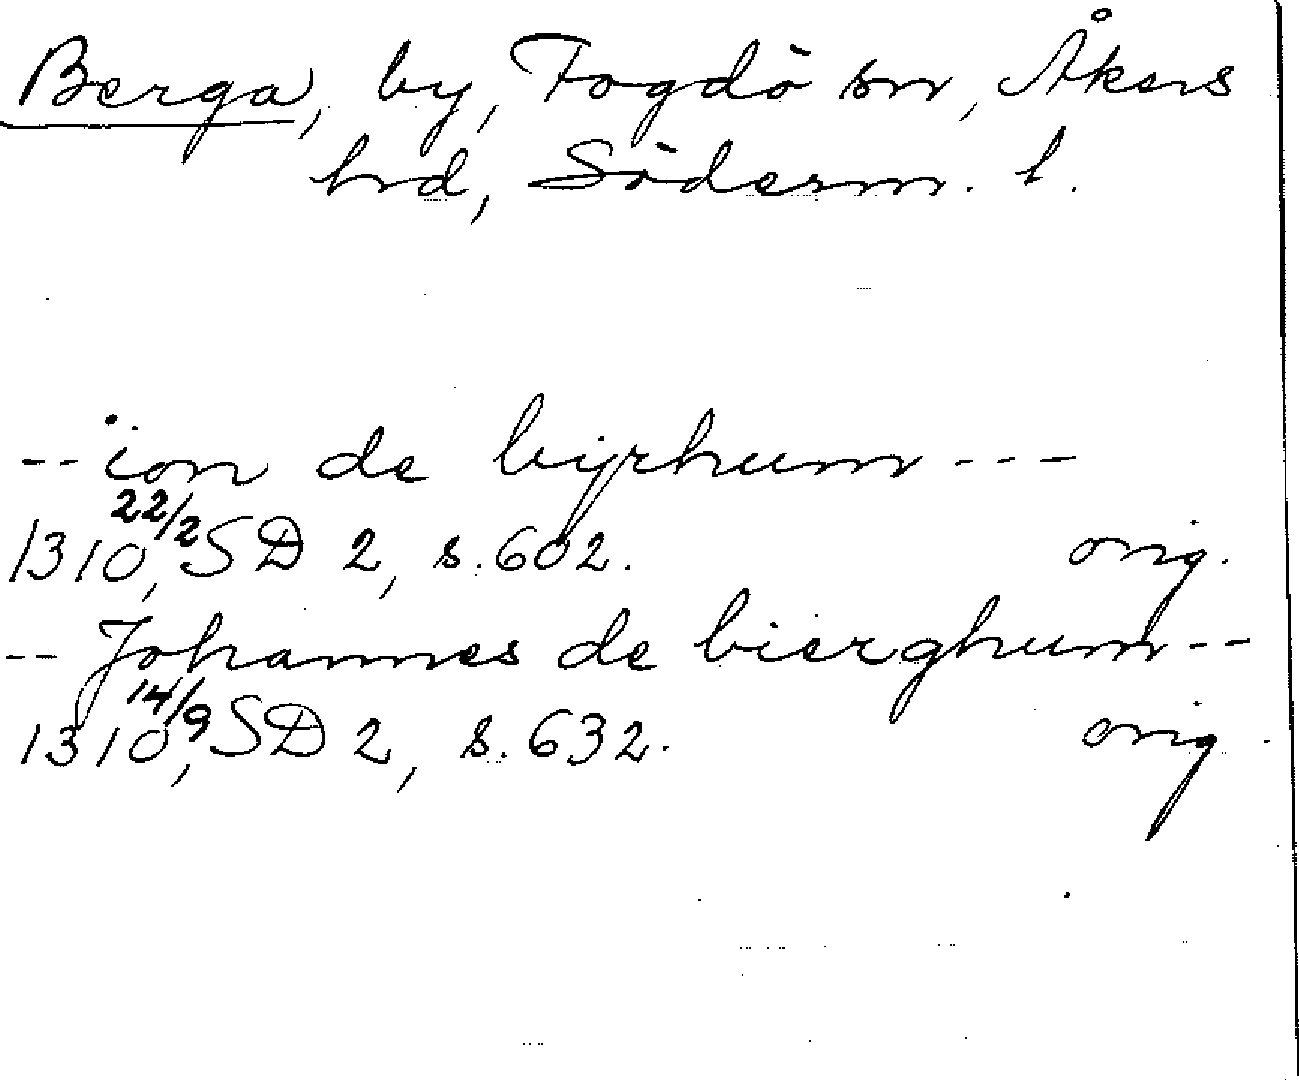 Berga, by, Fogdö sn, Åkers
hrd, Söderm. l.
-- ion de byrhum ---
1310 22/2, SD 2, s. 602. orig.
-- Johannes de bierghum --
1310 14/9, SD 2, s. 632. orig.